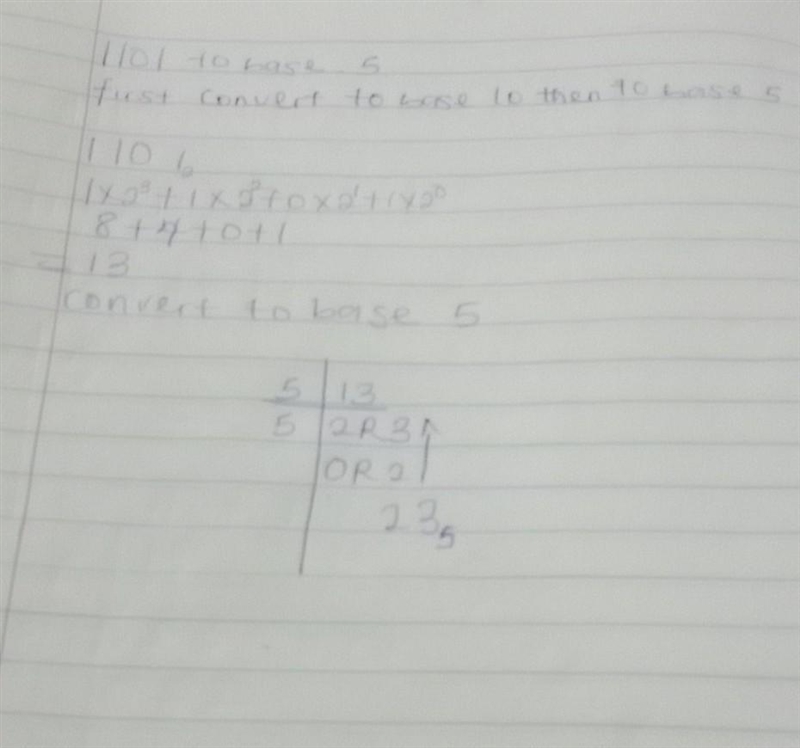 1101 to base 5
first convert to base 10 then to base 5
110
1×2³+1×2²+0×2¹+1×2⁰
8+4+0+1
= 13
convert to base 5
5 | 13
5 | 2R3
0R2
23₅